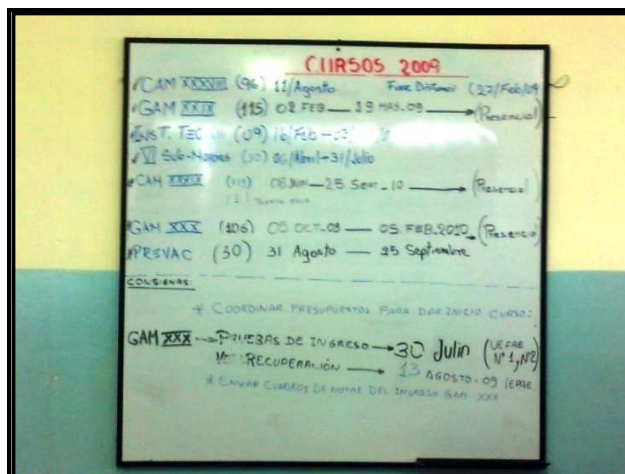 CURSOS 2009
CAM XXXVIII (96) 11/Agosto Fase Distancia (27/Feb/09
GAM XXIX (115) 02 FEB — 29 MAY.09 → (Presencial)
INST. TEC (09) 16/Feb
VI Sub-Normas (30) 06/Abril - 31/Julio
CAM XXXIX (113) 08 JUN — 25 Sept - 10 → (Presencial)
GAM XXX (106) 05 OCT.09 — 05 FEB.2010 (Presencial)
PREVAC (30) 31 Agosto — 25 Septiembre
CONSIGNAS:
* COORDINAR PRESUPUESTOS PARA DAR INICIO CURSO:
GAM XXX → PRUEBAS DE INGRESO → 30 Julio (UEFAE
Nº1, Nº2)
RECUPERACIÓN → 13 AGOSTO - 09
* ENVIAR CUADROS DE NOTAS DEL INGRESO GAM XXX